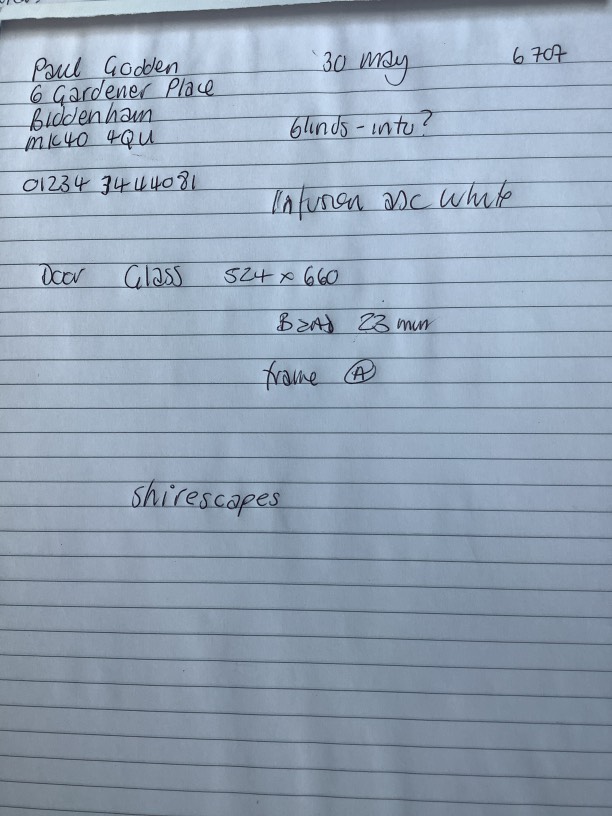 Paul Godden
30 may
6707
6 Gardener Place
Biddenham
MK40 4QU
blinds - intu?
01234 3444081
Infusion asc white
Door Glass 524 x 660
Bead 23 mm
frame A
Shirescapes